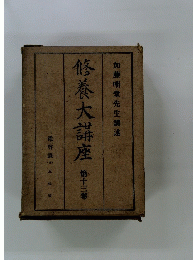 加藤咄堂先生講述
修養大講座
第十三巻